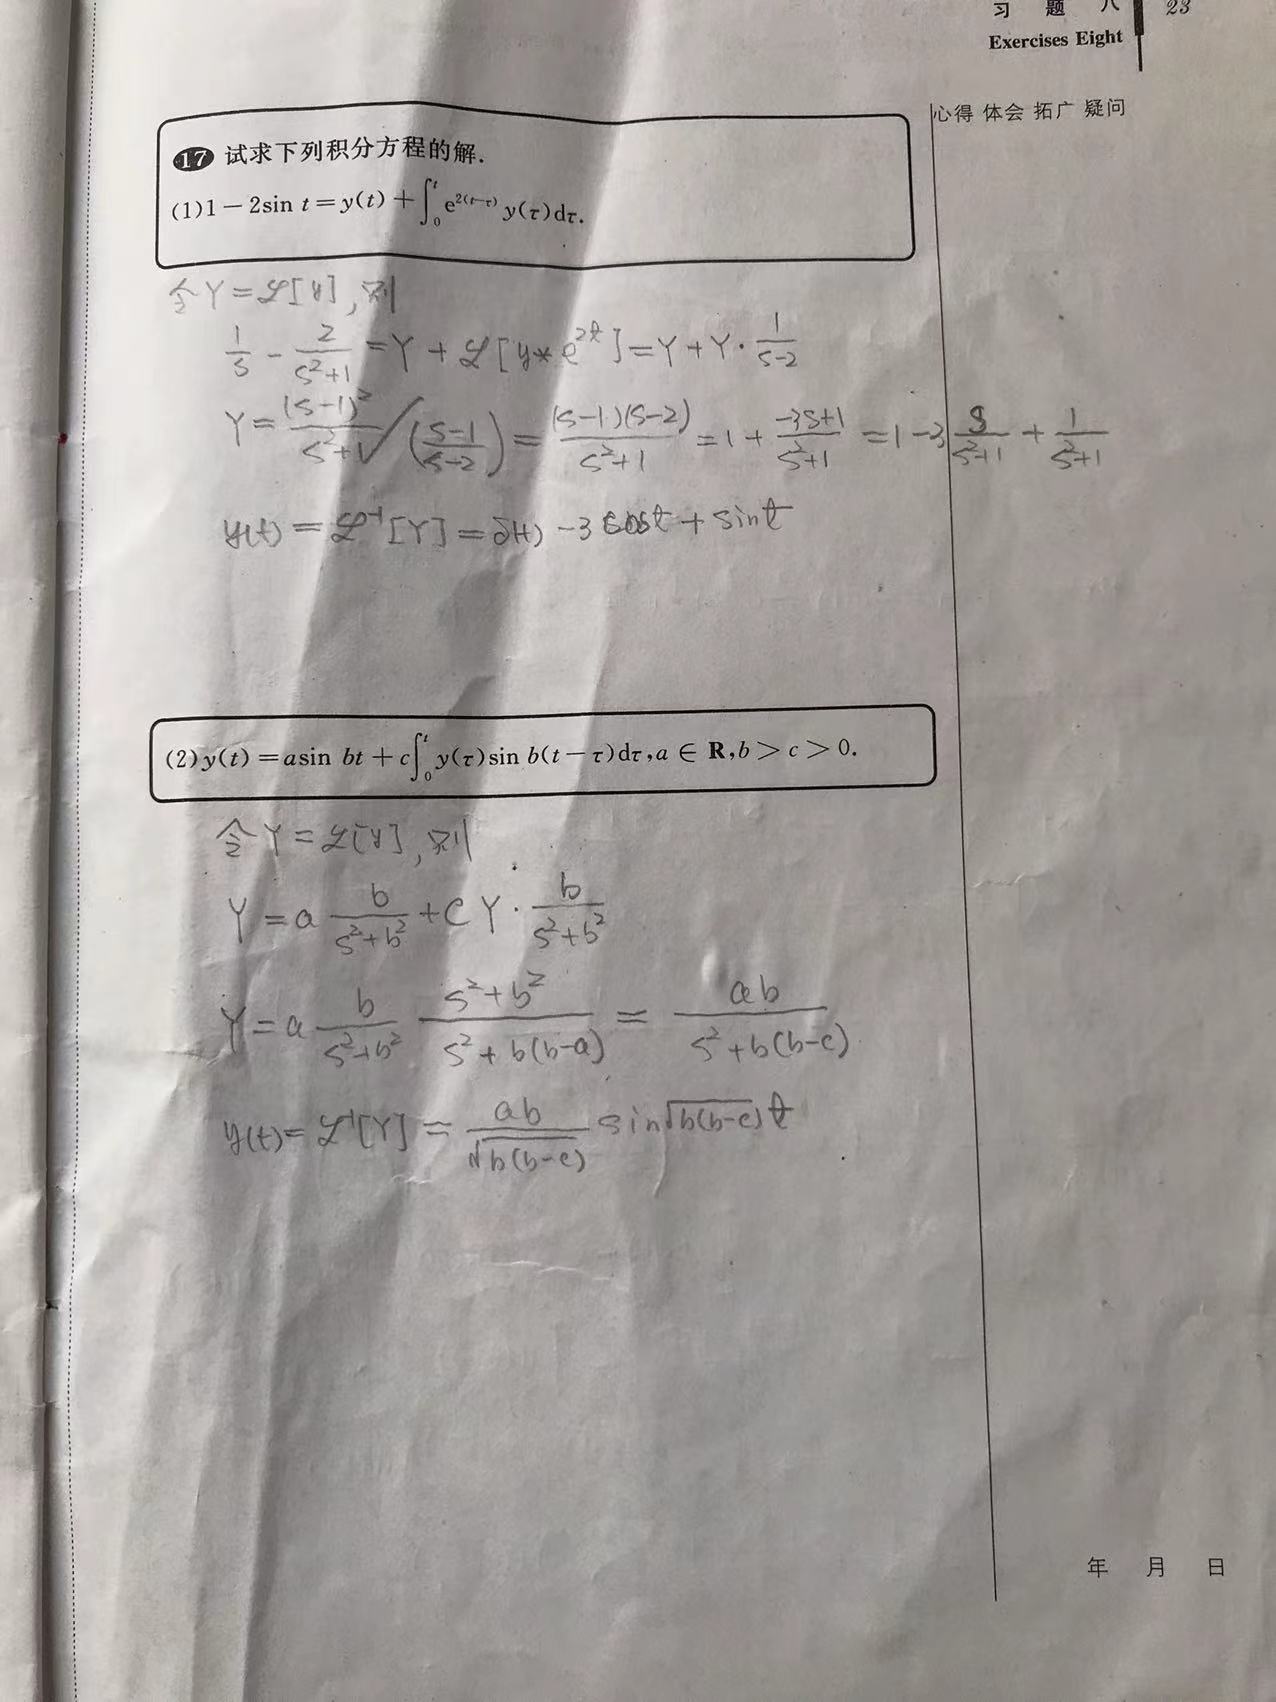 习 题 八 23
Exercises Eight
心得 体会 拓广 疑问
17 试求下列积分方程的解.
(1)1－2sin t＝y(t)＋∫₀ᵗ e^{2(t－τ)} y(τ)dτ.
令Y=ℒ[y],则
1/s - 2/(s²+1) = Y + ℒ[y*e^{2t}] = Y + Y·1/(s-2)
Y = (s-1)²/(s²+1) / ((s-1)/(s-2)) = (s-1)(s-2)/(s²+1) = 1 + (-3s+1)/(s²+1) = 1 - 3 s/(s²+1) + 1/(s²+1)
y(t) = ℒ⁻¹[Y] = δ(t) - 3cost + sint
(2)y(t)＝asin bt＋c∫₀ᵗ y(τ)sin b(t－τ)dτ,a∈R,b＞c＞0.
令Y=ℒ[y],则
Y = a b/(s²+b²) + cY·b/(s²+b²)
Y = a b/(s²+b²) (s²+b²)/(s²+b(b-a)) = ab/(s²+b(b-c))
y(t) = ℒ⁻¹[Y] = ab/√(b(b-c)) sin√(b(b-c)) t
年 月 日